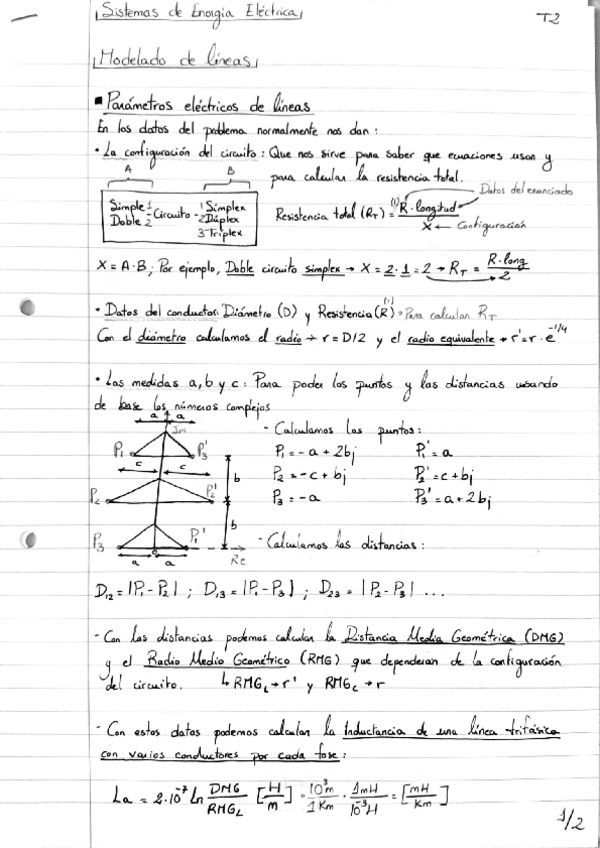 Sistemas de Energia Eléctrica
T2
Modelado de líneas
▪ Parámetros eléctricos de líneas
En los datos del problema normalmente nos dan:
• La configuración del circuito: Que nos sirve para saber que ecuaciones usar y
para calcular la resistencia total.
A B
Simple 1 - Circuito - 1 Simplex
Doble 2 2 Dúplex
3 Triplex
Resistencia total (R_T) =^(1) R · longitud / X
Datos del enunciado
X ← Configuración
X = A·B; Por ejemplo, Doble circuito simplex → X = 2·1 = 2 → R_T = R·long / 2
• Datos del conductor: Diámetro (D) y Resistencia (R)^(1) → Para calcular R_T
Con el diámetro calculamos el radio → r = D/2 y el radio equivalente → r' = r·e^(-1/4)
• Las medidas a, b y c: Para poder los puntos y las distancias usando
de base los números complejos
a a
Im
P1 P3'
c c
b
P2 P2'
b
P3 P1'
a a
Re
- Calculamos los puntos:
P1 = -a + 2bj P1' = a
P2 = -c + bj P2' = c + bj
P3 = -a P3' = a + 2bj
- Calculamos las distancias:
D12 = |P1 - P2| ; D13 = |P1 - P3| ; D23 = |P2 - P3| ...
- Con las distancias podemos calcular la Distancia Media Geométrica (DMG)
y el Radio Medio Geométrico (RMG) que dependeran de la configuración
del circuito. ↳ RMG_L → r' y RMG_C → r
- Con estos datos podemos calcular la Inductancia de una línea trifásica
con varios conductores por cada fase:
La = 2·10^-7 ln DMG / RMG_L [H/m] · 10^3 m / 1 Km · 1mH / 10^-3 H = [mH/Km]
1/2